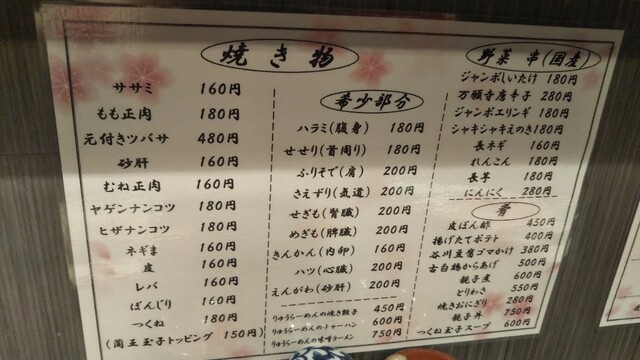 焼き物
ササミ 160円
もも正肉 180円
元付きツバサ 480円
砂肝 160円
むね正肉 160円
ヤゲンナンコツ 180円
ヒザナンコツ 180円
ネギま 160円
皮 160円
レバ 160円
ぼんじり 160円
つくね 180円
(蘭王玉子トッピング 150円)
希少部分
ハラミ(腹身) 180円
せせり(首周り) 180円
ふりそで(肩) 200円
さえずり(気道) 200円
せぎも(腎臓) 200円
めぎも(脾臓) 200円
きんかん(内卵) 160円
ハツ(心臓) 200円
えんがわ(砂肝) 200円
りゅうらーめんの焼き餃子 450円
りゅうらーめんのチャーハン 600円
りゅうらーめんの味噌ラーメン 750円
野菜 串(国産)
ジャンボしいたけ 180円
万願寺唐辛子 280円
ジャンボエリンギ 180円
シャキシャキえのき180円
長ネギ 160円
れんこん 180円
長芋 180円
にんにく 280円
肴
皮ぽん酢 450円
揚げたてポテト 400円
谷川豆腐ゴマかけ 380円
古白鶏からあげ 500円
親子煮 600円
とりわさ 550円
焼きおにぎり 280円
親子丼 750円
つくね玉子スープ 600円